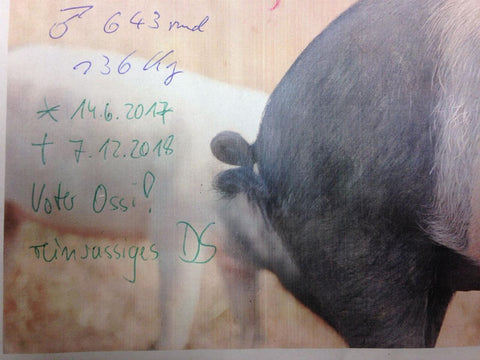 ♂ 643 rund
136 Kg
* 14.6.2017
† 7.12.2018
Vater Ossi!
reinrassiges DS